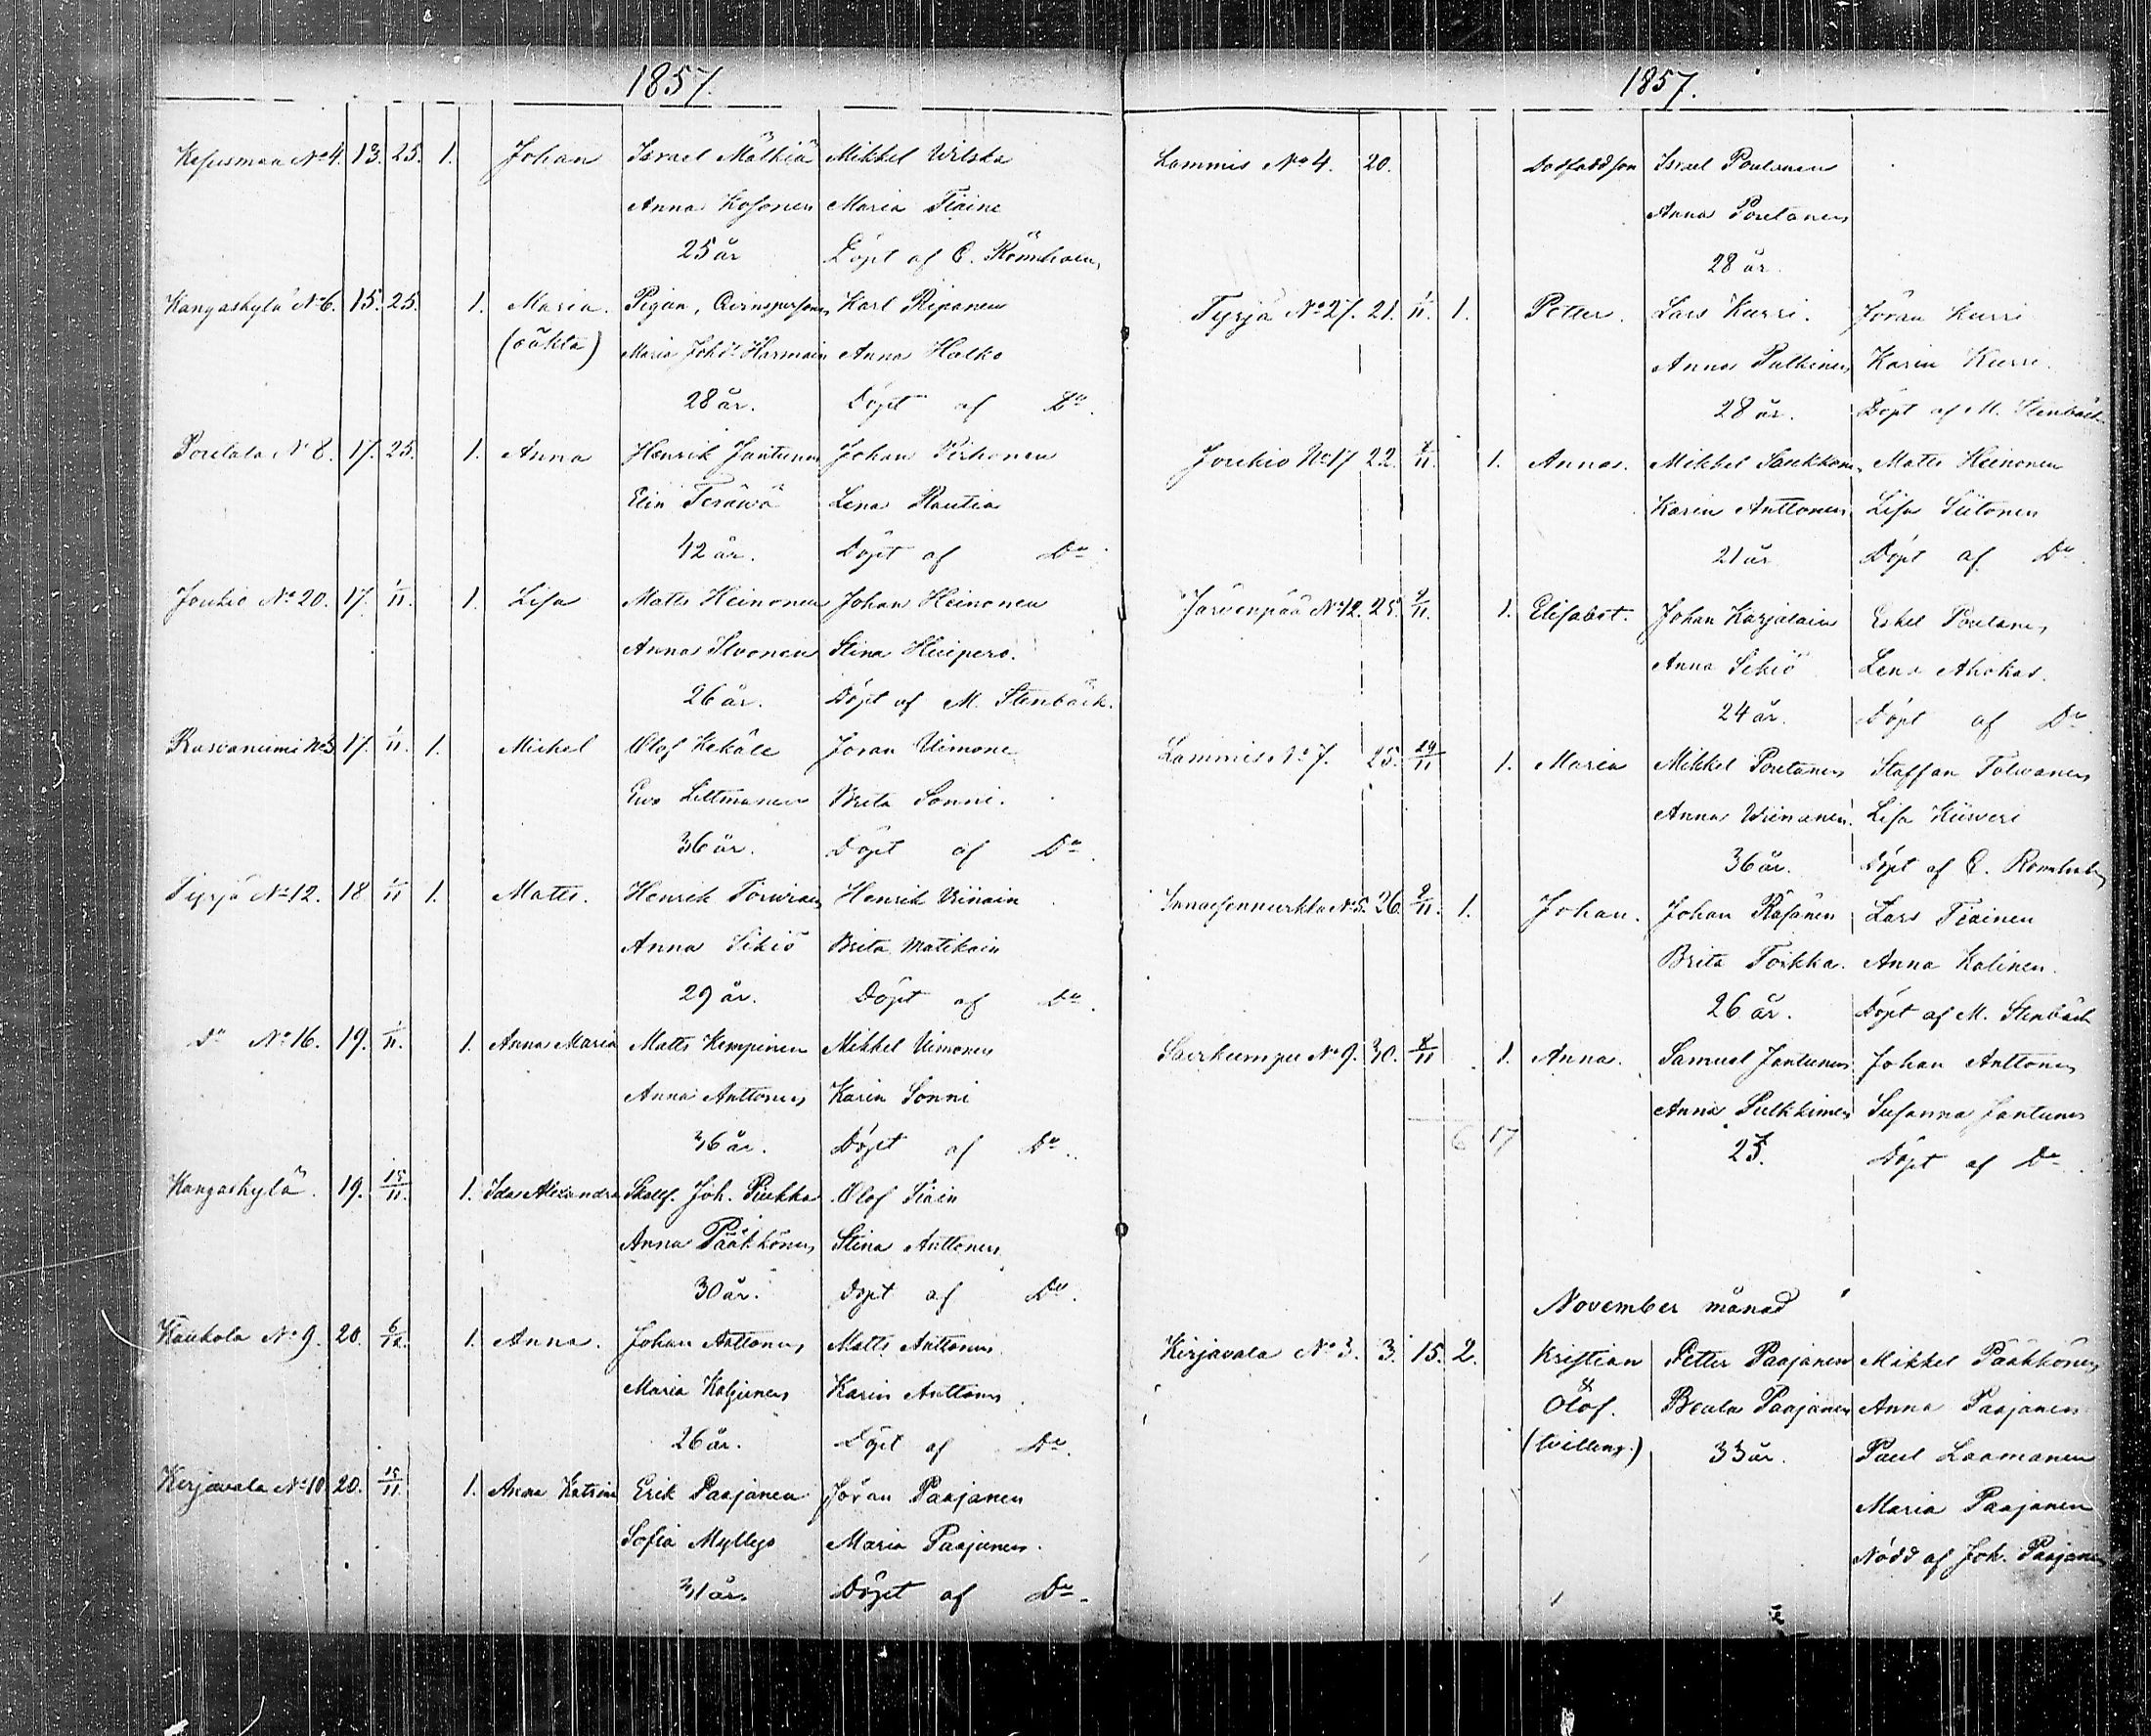 1857.
No 4. 13. 25. 1. Johan Israel Mälkiä Mikkel Wilska
Anna Kosonen Maria Tiaine
25 år Döpt af C.
Kangaskylä No 6. 15. 25. 1. Maria. Pigan, Karl Riponen
(oäkta) Maria Johd:r Harmain Anna Halko
28 år. Döpt af Do.
Poutala No 8. 17. 25. 1. Anna Henrik Jantunen Johan Pirhonen
Elin Teräwä Lena Rautia
42 år. Döpt af Do.
Joukio No 20. 17. 1/11. 1. Lisa Matts Heinonen Johan Heinonen
Anna Ilvonen Stina
26 år. Döpt af M. Stenbäck.
17. 1/11. 1. Michel Olof Kekäle Jöran Uimone
Ewa Littmanen Brita Sonni.
36 år. Döpt af Do.
Tyrjä No 12. 18 1/11 1. Matts. Henrik Henrik
Anna Sikiö Brita Matikain
29 år. Döpt af Do.
Do No 16. 19. 1/11. 1. Anna Maria Matts Kempinen Mikkel Uimonen
Anna Anttonen Karin Sonni
36 år. Döpt af Do.
Kangaskylä. 19. 15/11. 1. Ida Alexandra Joh. Olof Tiain
Anna Pääkkönen Stina Anttonen
30 år. Döpt af Do.
Kaukola No 9. 20. 6/12. 1. Anna. Johan Anttonen Matts Anttonen
Maria Karin Anttonen
26 år. Döpt af Do.
Kirjavala No 10. 20. 15/11. 1. Anna Katrina Erik Paajanen Jöran Paajanen
Sofia Myllys Maria Paajanen.
31 år. Döpt af Do.
1857.
Lammis No 4. 20. Dödfödd son Israel Poutanen
Anna Poutanen
28 år.
Tyrjä No 27. 21. 1/11. 1. Petter. Lars Kurri. Jöran Kurri
Anna Pulkinen Karin Kurri.
28 år. Döpt af M. Stenbäck
Joukio No 17 22. 1. Anna. Mikkel Matts Heinonen
Karin Anttonen Lisa Siitonen
21 år Döpt af Do.
Järvenpää No 12. 25. 1. Elisabet. Johan Karjalain Eskel Poutanen
Anna Sikiö Lena Ahokas.
24 år. Döpt af Do.
Lammis No 7. 25. 29/11 1. Maria Mikkel Poutanen Staffan Tolwanen
Anna Lisa
36 år. Döpt af C.
No 5. 26. 1. Johan. Johan Räsänen Lars Tiainen
Brita Toikka. Anna Kalinen.
26 år. Döpt af M. Stenbäck
Saarikumpu No 9. 30. 8/11 1. Anna. Samuel Jantunen Johan Anttonen
Anna Pulkkinen Susanna Jantunen
6 17
25. Döpt af Do.
November månad
Kirjavala No 3. 3. 15. 2. Kristian Petter Paajanen Mikkel Pääkkönen
& Olof. Beata Paajanen Anna Paajanen
(tvilling.) 33 år. Paul Laamanen
Maria Paajanen
Nödd af Joh. Paajanen